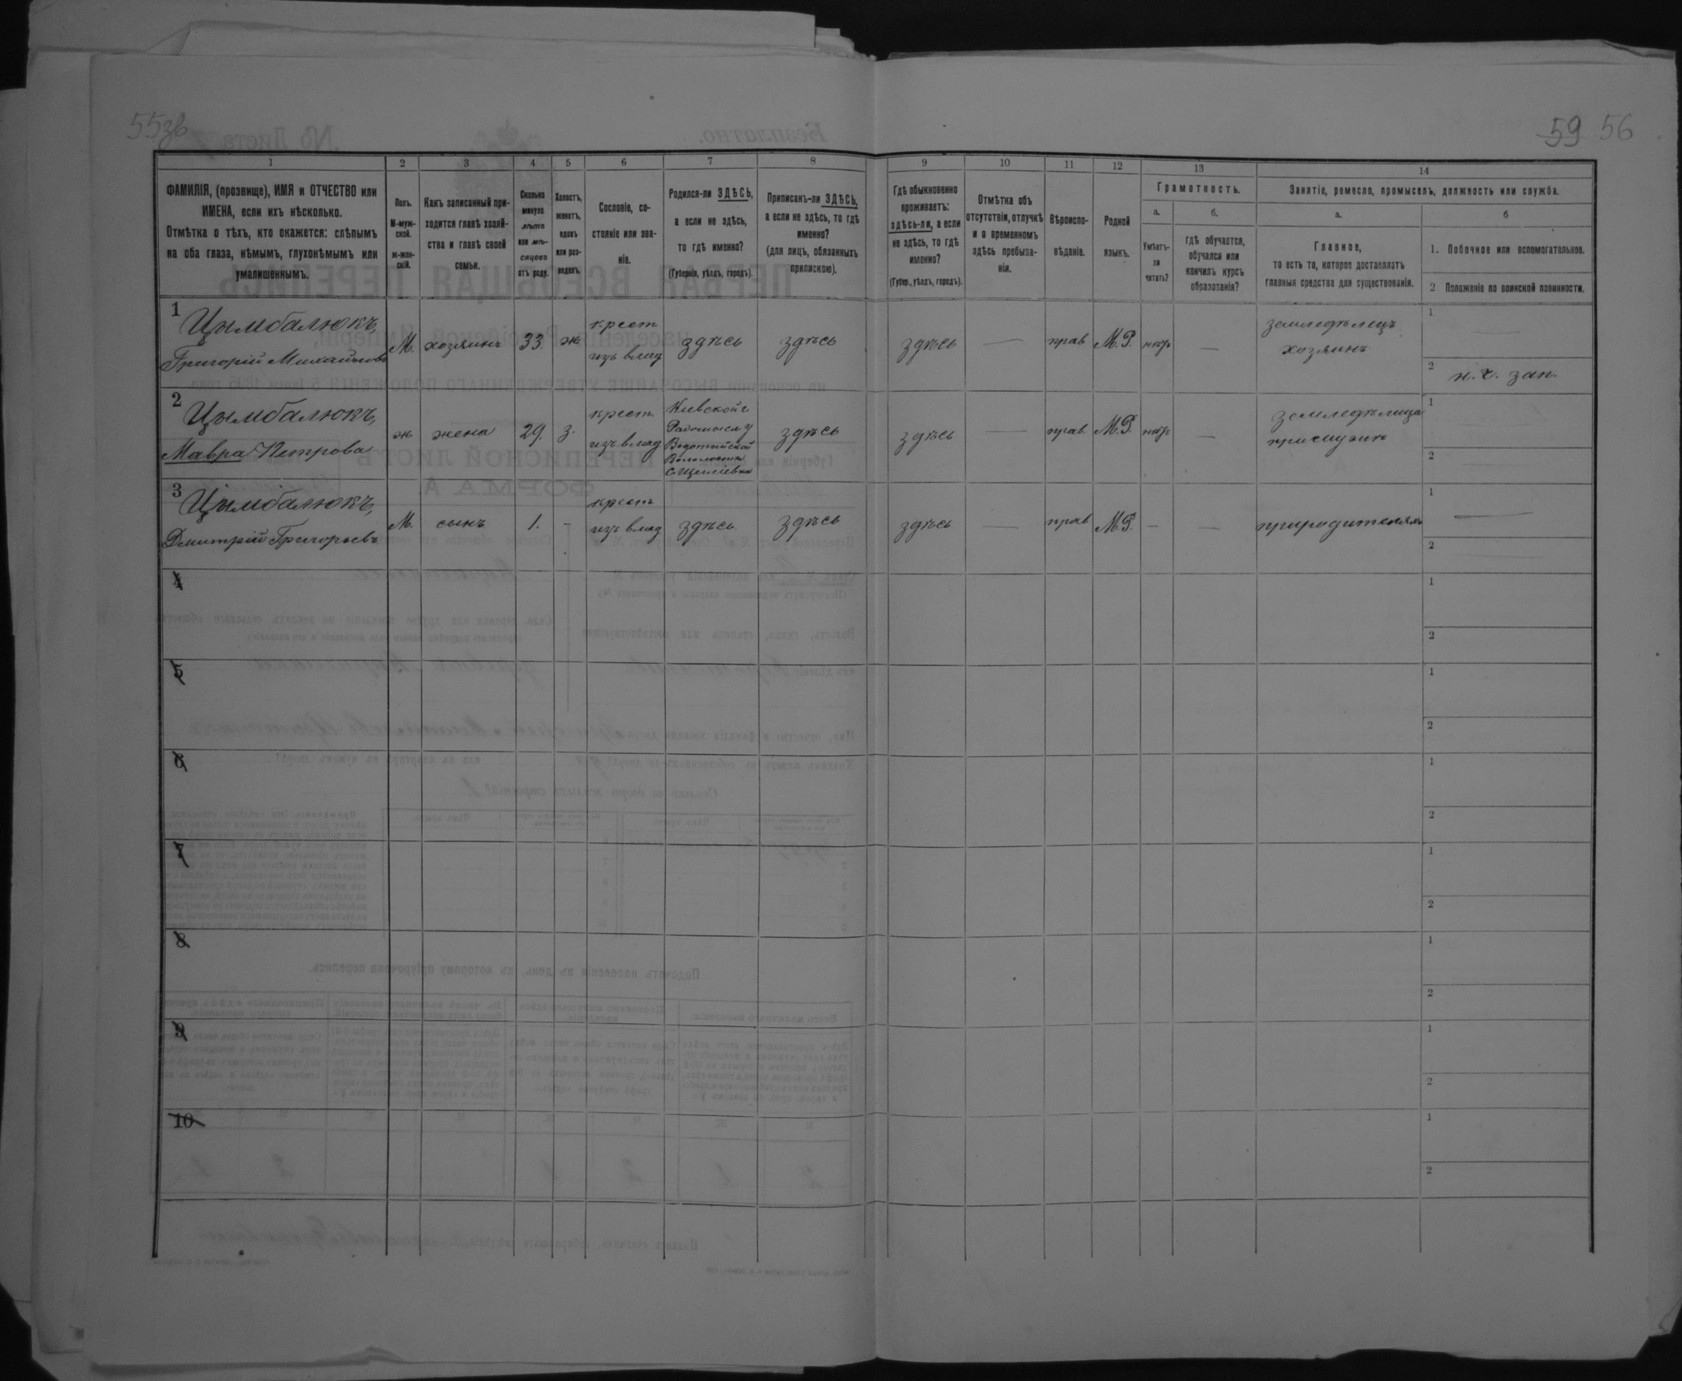 55зв
59 56
1 2 3 4 5 6 7 8 9 10 11 12 13 14
ФАМИЛІЯ, (прозвище), ИМЯ и ОТЧЕСТВО или
ИМЕНА, если ихъ нѣсколько.
Отмѣтка о тѣхъ, кто окажется: слѣпымъ
на оба глаза, нѣмымъ, глухонѣмымъ или
умалишеннымъ.
Полъ.
М-муж-
ской.
ж-жен-
скій.
Какъ записанный при-
ходится главѣ хозяй-
ства и главѣ своей
семьи.
Сколько
минуло
лѣтъ
или мѣ-
сяцевъ
отъ роду.
Холостъ,
женатъ,
вдовъ
или раз-
веденъ.
Сословіе, со-
стояніе или зва-
ніе.
Родился-ли ЗДѢСЬ,
а если не здѣсь,
то гдѣ именно?
(Губернія, уѣздъ, городъ).
Приписанъ-ли ЗДѢСЬ,
а если не здѣсь, то гдѣ
именно?
(для лицъ, обязанныхъ
припискою).
Гдѣ обыкновенно
проживаетъ:
здѣсь-ли, а если
не здѣсь, то гдѣ
именно?
(Губер., уѣздъ, городъ).
Отмѣтка объ
отсутствіи, отлучкѣ
и о временномъ
здѣсь пребыва-
ніи.
Вѣроиспо-
вѣданіе.
Родной
языкъ.
Грамотность.
а.
Умѣетъ-
ли
читать?
б.
гдѣ обучается,
обучался или
кончилъ курсъ
образованія?
Занятіе, ремесло, промыселъ, должность или служба.
а.
Главное,
то есть то, которое доставляетъ
главныя средства для существованія.
б
1. Побочное или вспомогательное.
2 Положеніе по воинской повинности.
1
Цымбалюкъ,
Григорій Михайловъ
М. хозяинъ 33 ж
крест
изъ влад
здѣсь здѣсь здѣсь — прав М.Р. нѣтъ —
земледѣлецъ
хозяинъ
1 —
2 н. ч. зап.
2
Цымбалюкъ,
Мавра Петрова
ж жена 29. з.
крест
изъ влад
Кіевской г.
Радомысл у
Волости
здѣсь здѣсь — прав М.Р. нѣтъ —
земледѣлица
1
2 —
3
Цымбалюкъ,
Дмитрій Григорьевъ
М. сынъ 1. -
крест
изъ влад
здѣсь здѣсь здѣсь — прав М.Р. — —
при родителяхъ
1 —
2
4
1
2
5
1
2
6
1
2
7
1
2
8
1
2
9
1
2
10
1
2